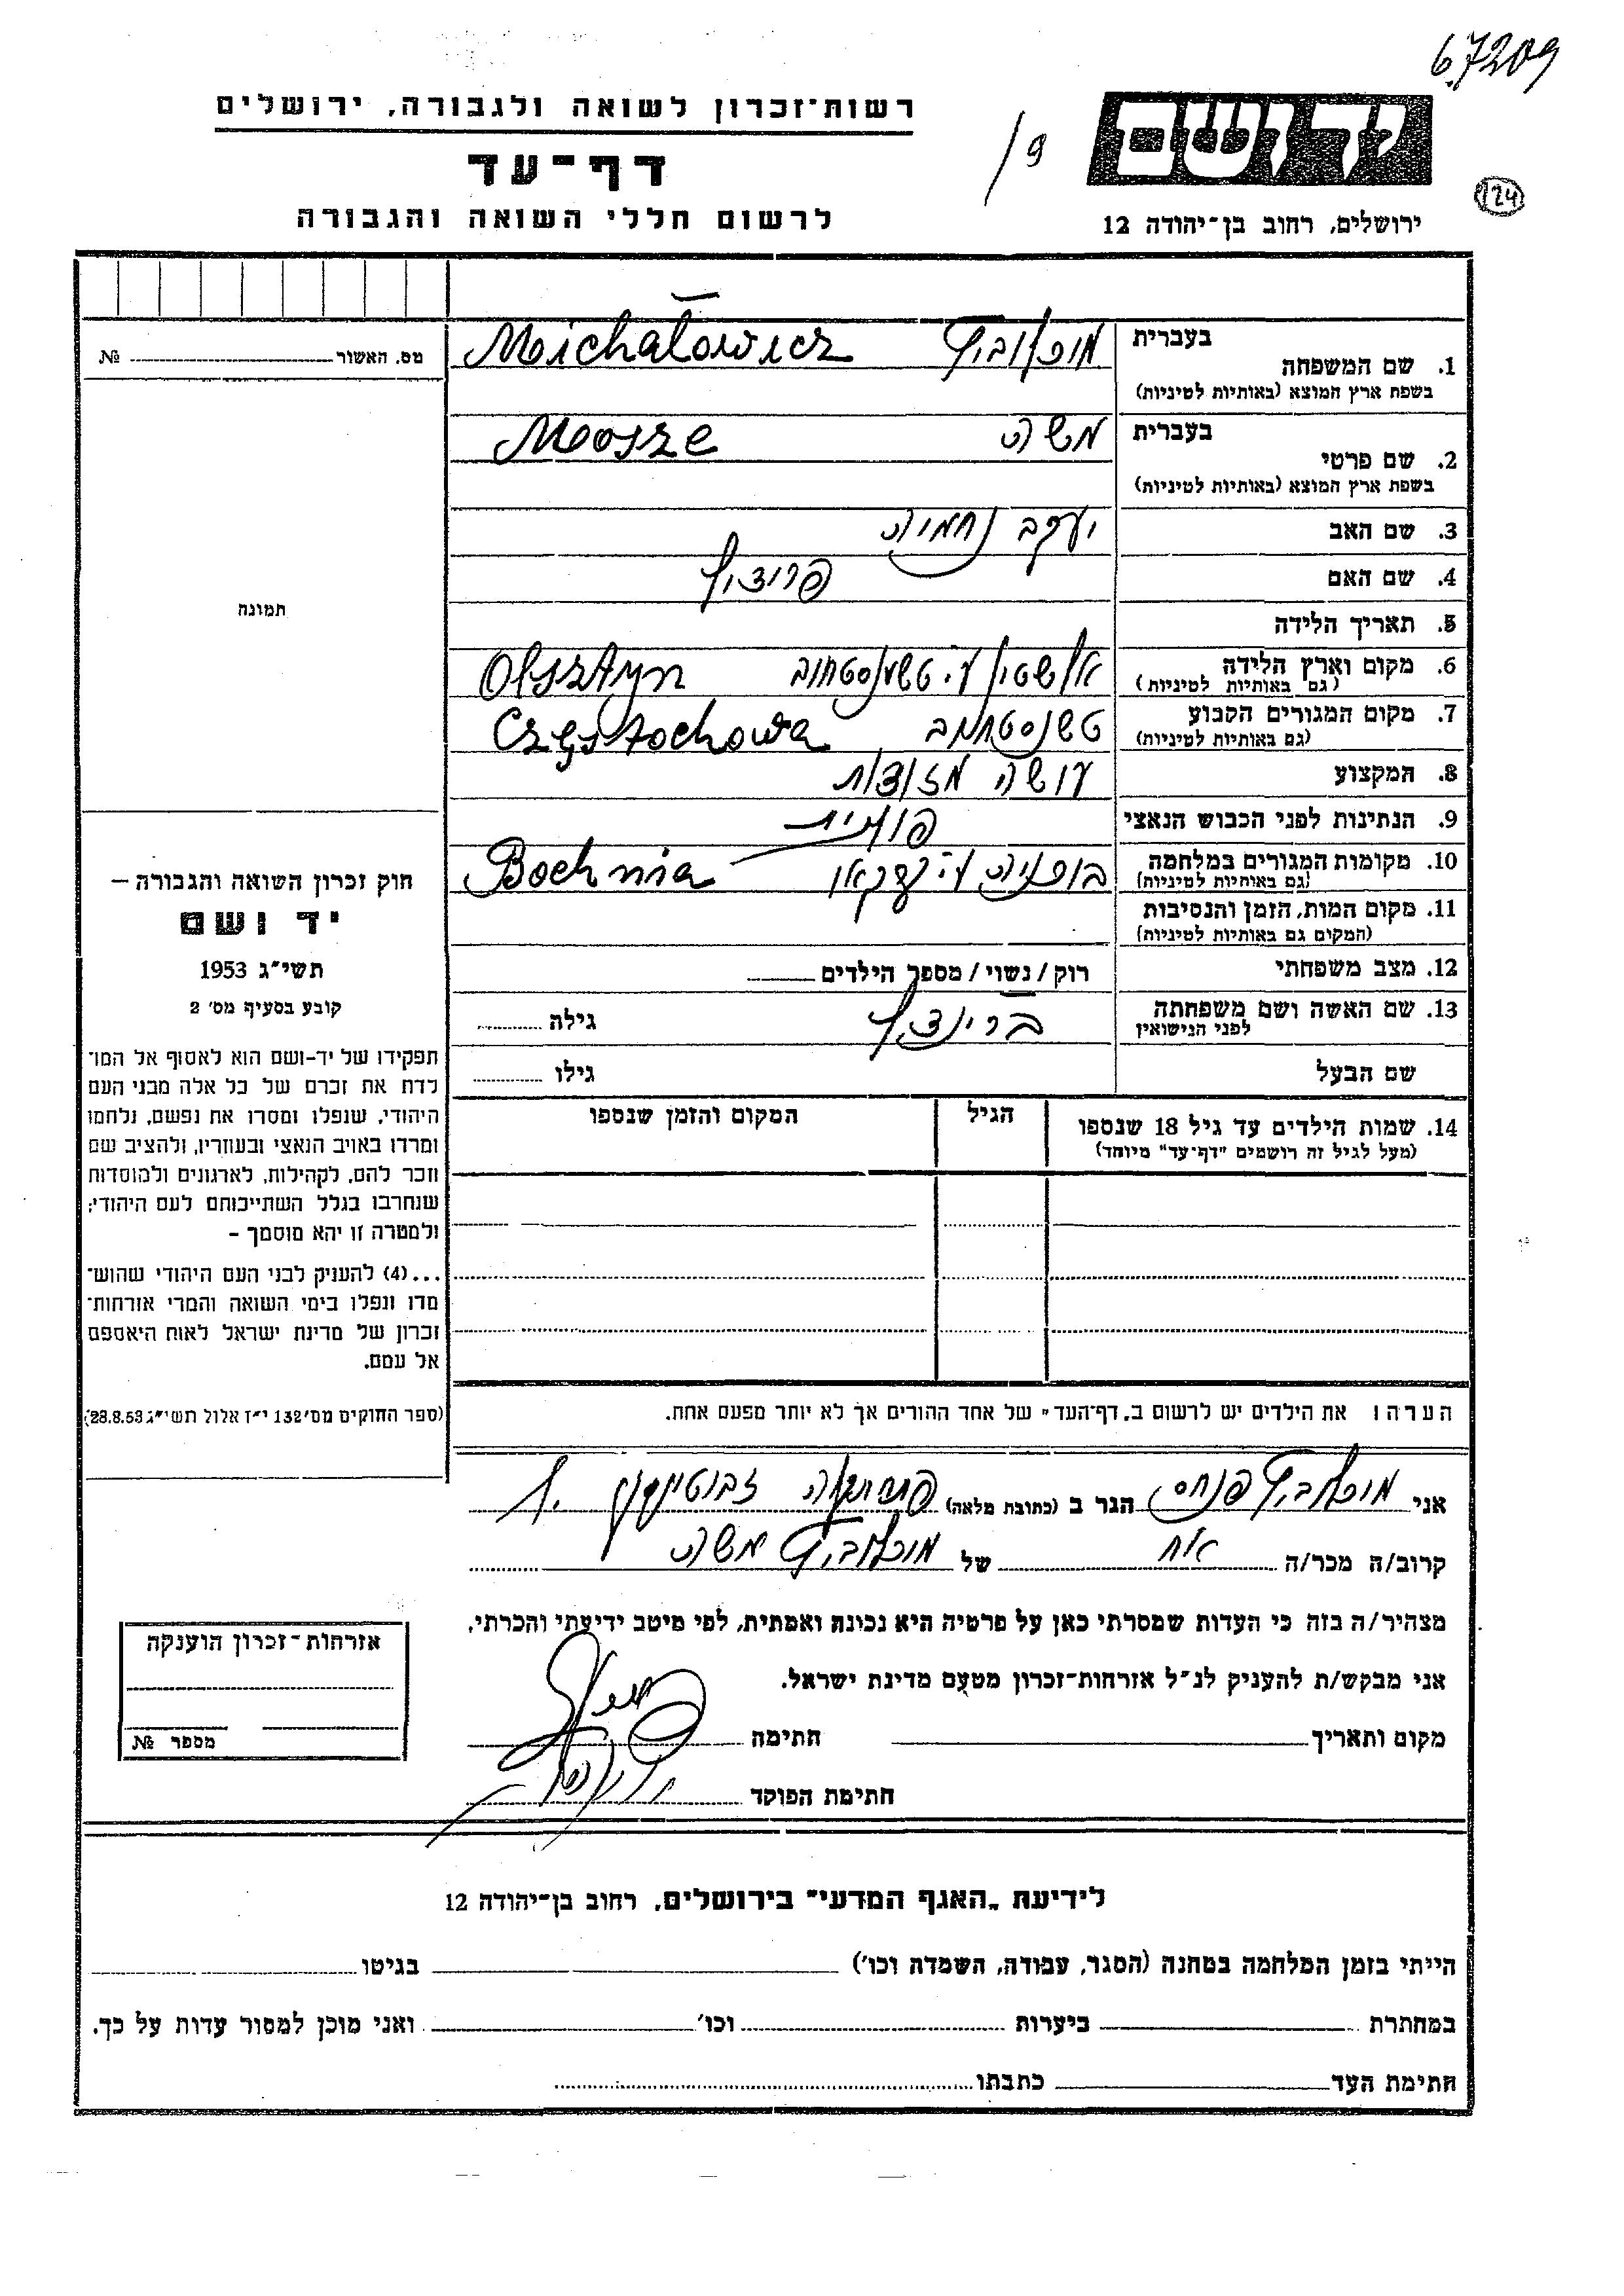 67209
רשות־זכרון לשואה ולגבורה, ירושלים
ידושם
9
דף־עד
124
לרשום חללי השואה והגבורה
ירושלים, רחוב בן־יהודה 12
בעברית
1. שם המשפחה
Michałowicz
בשפת ארץ המוצא (באותיות לטיניות)
מס. האשור № 
בעברית משה
2. שם פרטי
Mosze
בשפת ארץ המוצא (באותיות לטיניות)
3. שם האב יעקב נחמיה
4. שם האם
תמונה
5. תאריך הלידה
6. מקום וארץ הלידה Olsztyn
(גם באותיות לטיניות)
7. מקום המגורים הקבוע Częstochowa
(גם באותיות לטיניות)
8. המקצוע עושה מזוודות
9. הנתינות לפני הכבוש הנאצי פולנית
10. מקומות המגורים במלחמה Bochnia
(גם באותיות לטיניות)
11. מקום המות, הזמן והנסיבות
(המקום גם באותיות לטיניות)
12. מצב משפחתי רוק / נשוי / מספר הילדים
13. שם האשה ושם משפחתה גילה
לפני הנישואין
שם הבעל גילו
14. שמות הילדים עד גיל 18 שנספו הגיל המקום והזמן שנספו
(מעל לגיל זה רושמים "דף־עד" מיוחד)
חוק זכרון השואה והגבורה –
יד ושם
תשי״ג 1953
קובע בסעיף מס׳ 2
תפקידו של יד-ושם הוא לאסוף אל המו־
לדת את זכרם של כל אלה מבני העם
היהודי, שנפלו ומסרו את נפשם, נלחמו
ומרדו באויב הנאצי ובעוזריו, ולהציב שם
וזכר להם, לקהילות, לארגונים ולמוסדות
שנחרבו בגלל השתייכותם לעם היהודי;
ולמטרה זו יהא מוסמך –
...(4) להעניק לבני העם היהודי שהוש־
מדו ונפלו בימי השואה והמרי אזרחות־
זכרון של מדינת ישראל לאות היאספם
אל עמם.
(ספר החוקים מס׳ 132 י״ז אלול תשי״ג 28.8.53)
הערה: את הילדים יש לרשום ב„דף־העד״ של אחד ההורים אך לא יותר מפעם אחת.
אני מיכלוביץ פנחס הגר ב (כתובת מלאה)
קרוב/ה מכר/ה אח של מיכלוביץ משה
מצהיר/ה בזה כי העדות שמסרתי כאן על פרטיה היא נכונה ואמתית, לפי מיטב ידיעתי והכרתי.
אני מבקש/ת להעניק לנ״ל אזרחות־זכרון מטעם מדינת ישראל.
מקום ותאריך חתימה
חתימת הפוקד
אזרחות־זכרון הוענקה
מספר №
לידיעת „האגף המדעי״ בירושלים, רחוב בן־יהודה 12
הייתי בזמן המלחמה במחנה (הסגר, עבודה, השמדה וכו׳) בגיטו
במחתרת ביערות וכו׳ ואני מוכן למסור עדות על כך.
חתימת העד כתבתו